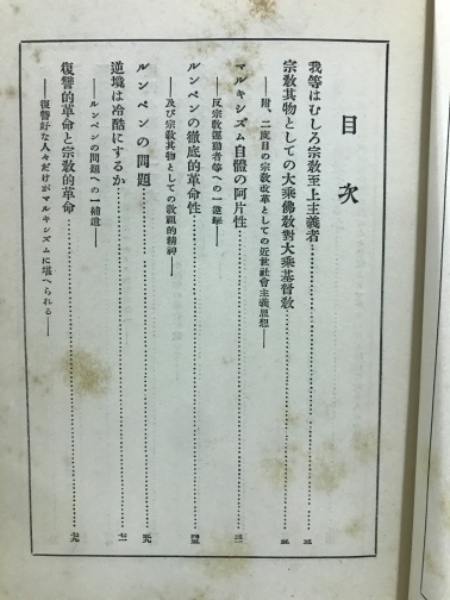 目次
我等はむしろ宗教至上主義者……三
宗教其物としての大乘佛教對大乘基督教……
――附、二度目の宗教改革としての近世社會主義思想――
マルキシズム自體の阿片性……三一
――反宗教運動者等への一進呈――
ルンペンの徹底的革命性……
――及び宗教其物としての教祖的精神――
ルンペンの問題……
逆境は冷酷にするか……七一
――ルンペンの問題への一補遺――
復讐的革命と宗教的革命……
――復讐好な人々だけがマルキシズムに堪へられる――